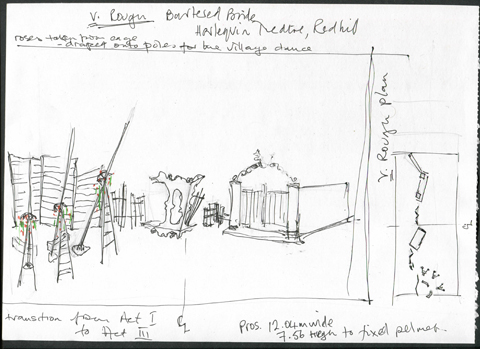 V. Rough Bartered Bride
Harlequin Theatre, Redhill
roses taken from cage
- draped onto poles for the village dance
V. Rough plan
transition from Act I
to Act III
Pros. 12.04m wide
7.56 high to fixed pelmet.